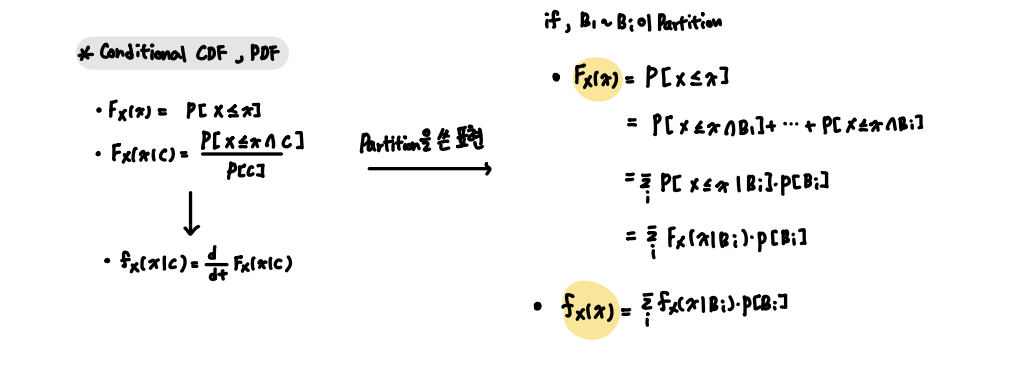 * Conditional CDF, PDF
• Fx(x) = P[X≤x]
• Fx(x|C) = P[X≤x∩C] / P[C]
• fx(x|C) = d/dt Fx(x|C)
Partition을 쓴 표현
if, B₁~Bᵢ이 Partition
• Fx(x) = P[X≤x]
= P[X≤x∩B₁]+ ··· + P[X≤x∩Bᵢ]
= Σᵢ P[X≤x|Bᵢ]·P[Bᵢ]
= Σᵢ Fx(x|Bᵢ)·P[Bᵢ]
• fx(x) = Σᵢ fx(x|Bᵢ)·P[Bᵢ]